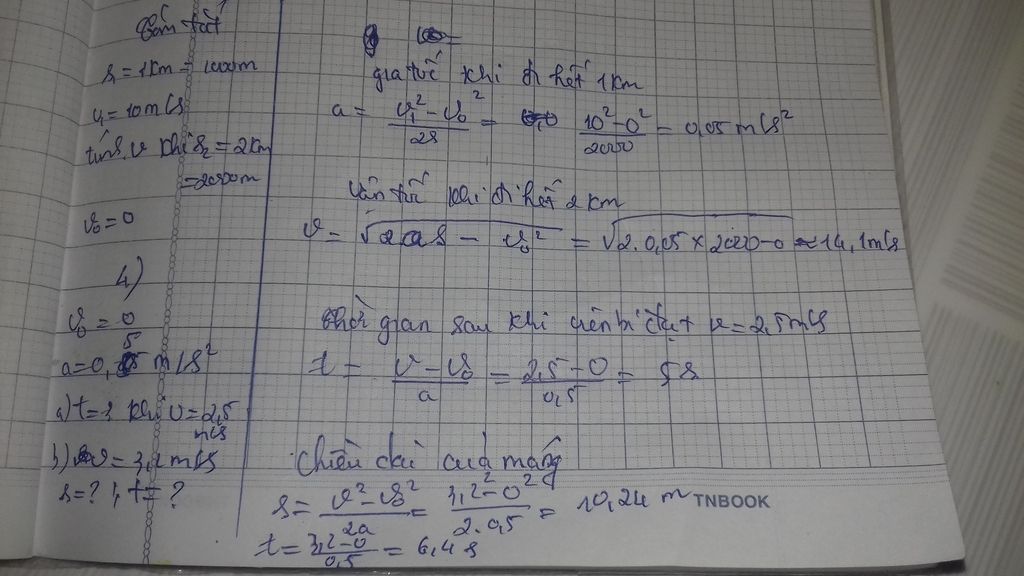 Tóm tắt
s₁ = 1Km = 1000m
v₁ = 10m/s
tính v khi s₂ = 2km
= 2000m
v₀ = 0
4)
v₀ = 0
a = 0,5 m/s²
a) t = ? khi v = 2,5
m/s
b) v = 3,2m/s
s = ? , t = ?
gia tốc khi đi hết 1km
a = (v₁² - v₀²)/2s = (10² - 0²)/2000 = 0,05 m/s²
vận tốc khi đi hết 2km
v = √(2as - v₀²) = √(2.0,05 × 2000 - 0) ≈ 14,1m/s
thời gian sau khi viên bi đạt v = 2,5m/s
t = (v - v₀)/a = (2,5 - 0)/0,5 = 5s
chiều dài của máng
s = (v² - v₀²)/2a = (3,2² - 0²)/2.0,5 = 10,24 m
t = (3,2 - 0)/0,5 = 6,4s
TNBOOK